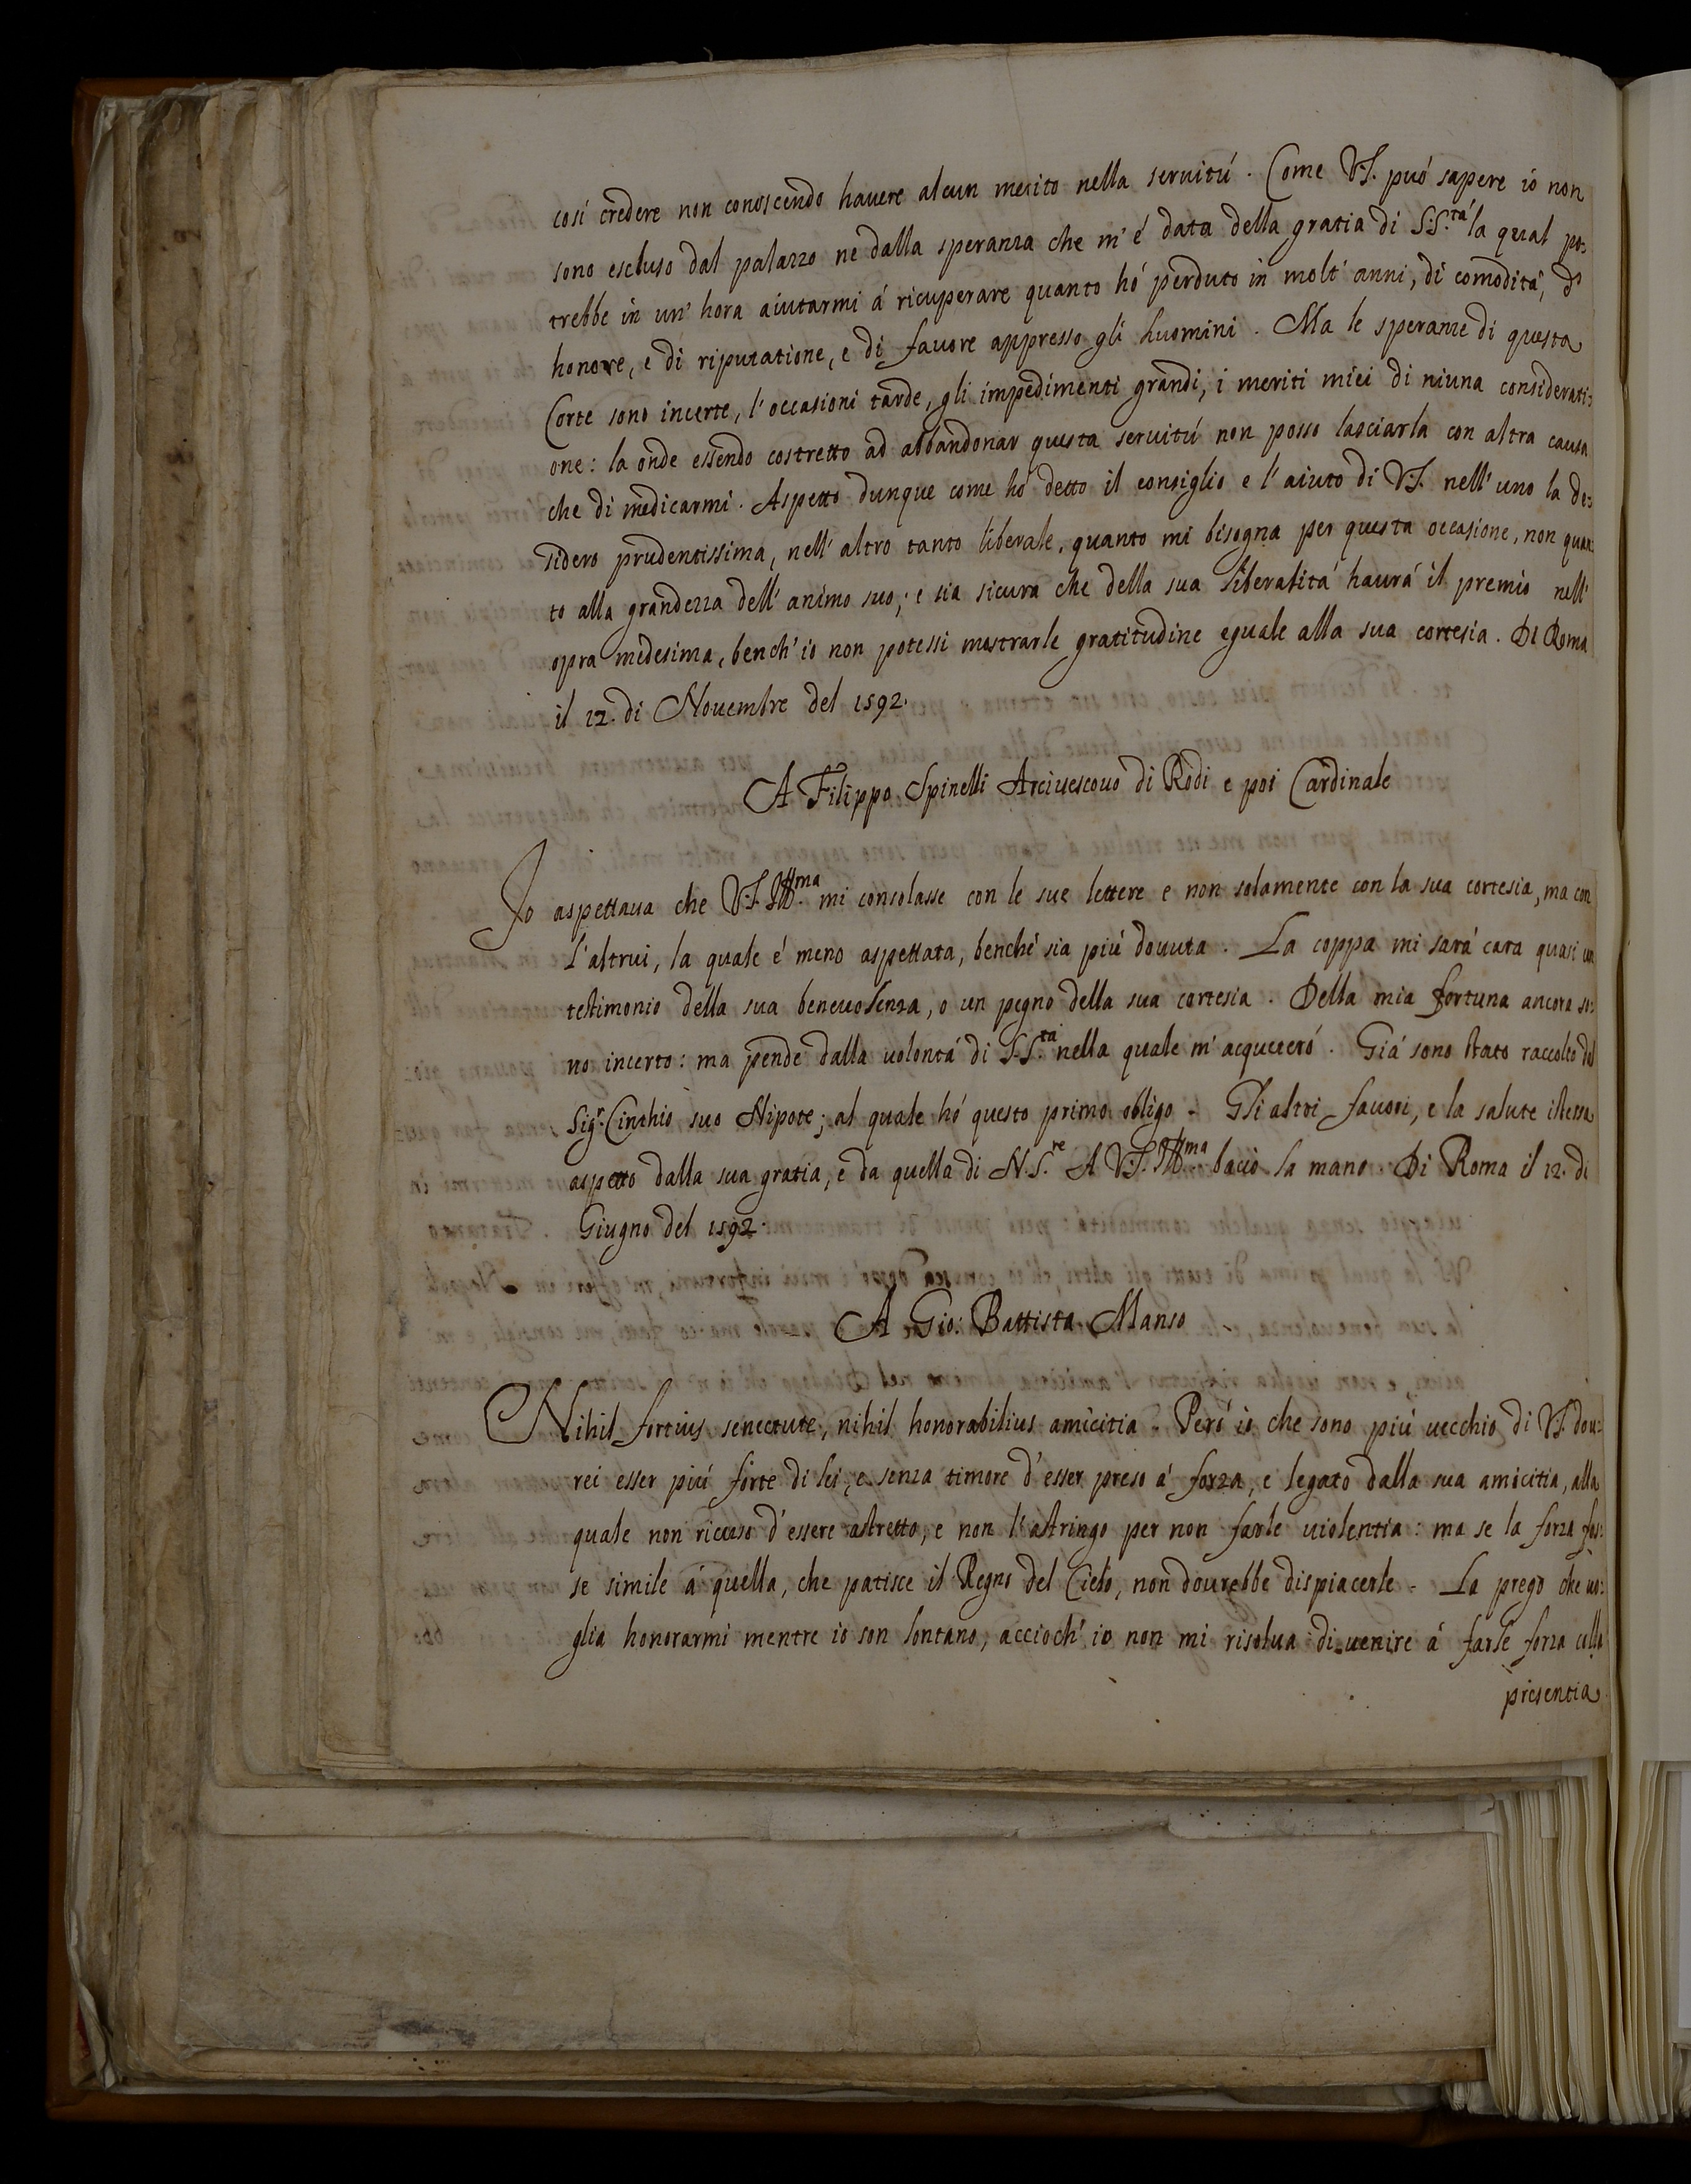 così credere non conoscendo hauere alcun merito nella seruitú. Come V.S. può sapere io non
sono escluso dal palazzo ne dalla speranza che m'é data della gratia di S.S.tá la qual po:
trebbe in un'hora aiutarmi á ricuperare quanto hó perduto in molt'anni, di comodità, d'
honore, e di riputatione, e di fauore appresso gli huomini. Ma le speranze di questa
Corte sono incerte, l'occasioni tarde, gli impedimenti grandi, i meriti miei di niuna considerati:
one: la onde essendo costretto ad abbandonar questa seruitú non posso lasciarla con altra causa
che di medicarmi. Aspetto dunque come hó detto il consiglio e l'aiuto di V.S. nell'uno la de:
sidero prudentissima, nell'altro tanto liberale, quanto mi bisogna per questa occasione, non quan:
to alla grandezza dell'animo suo; e sia sicura che della sua liberalitá haurá il premio nell'
opra medesima, bench'io non potessi mostrarle gratitudine eguale alla sua cortesia. Di Roma
il 12. di Nouembre del 1592.
A Filippo Spinelli Arciuescouo di Rodi e poi Cardinale
Io aspettaua che V.S. Ill.ma mi consolasse con le sue lettere e non solamente con la sua cortesia, ma con
l'altrui, la quale é meno aspettata, benché sia piú douuta. La coppa mi sará cara quasi un
testimonio della sua beneuolenza, o un pegno della sua cortesia. Della mia fortuna ancora so:
no incerto: ma pende dalla uolontá di S.S.tá nella quale m'acqueteró. Giá sono stato raccolto dal
Sig.r Cinthio suo Nipote; al quale hó questo primo obligo. Gli altri fauori, e la salute istessa
aspetto dalla sua gratia, e da quella di N.S.re A V.S. Ill.ma bacio la mano. Di Roma il 12. di
Giugno del 1592.
A Gio: Battista Manso
Nihil fortius senectute, nihil honorabilius amicitia. Peró io che sono piú uecchio di V.S. dou:
rei esser piú forte di lei, e senza timore d'esser preso á forza, e legato dalla sua amicitia, alla
quale non ricuso d'essere astretto, e non l'astringo per non farle uiolentia: ma se la forza fos:
se simile á quella, che patisce il Regno del Cielo, non dourebbe dispiacerle. La prego che uo:
glia honorarmi mentre io son lontano, accioch'io non mi risolua di uenire á farle forza colla
presentia